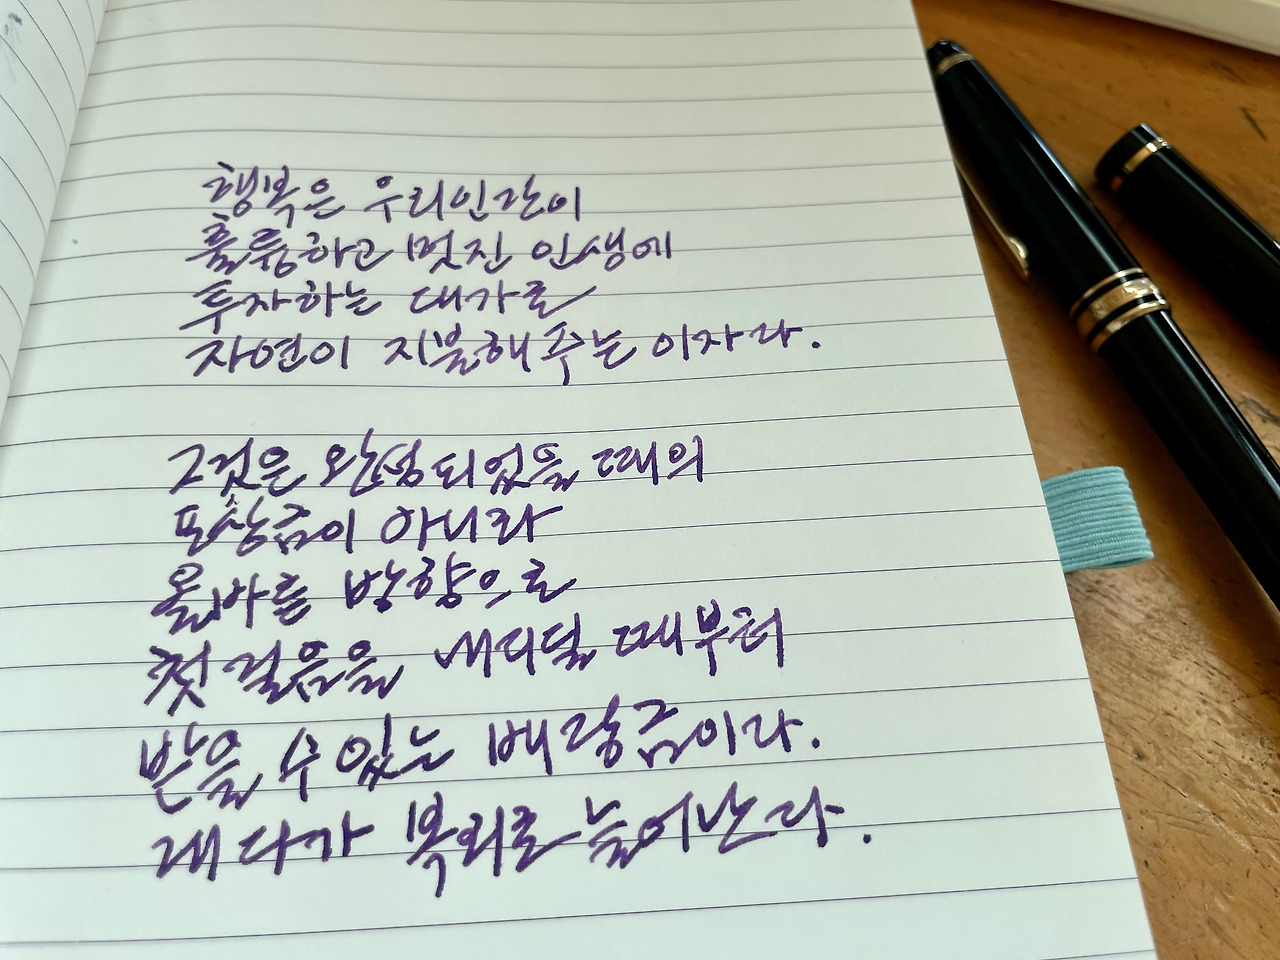 행복은 우리 인간이
훌륭하고 멋진 인생에
투자하는 대가로
자연이 지불해 주는 이자다.
그것은 완성되었을 때의
포상금이 아니라
올바른 방향으로
첫 걸음을 내디딜 때부터
받을 수 있는 배당금이다.
게다가 복리로 늘어난다.